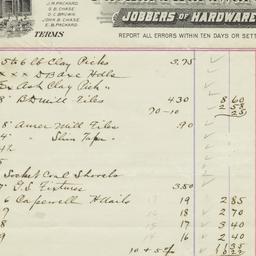 J.M.PACKARD
G.B.CHASE
D.C.BROWN
JOHN B. CHASE
E.B.PACKARD
JOBBERS OF HARDWARE
TERMS
REPORT ALL ERRORS WITHIN TEN DAYS OR SETT
5 to 6 lb Clay Picks 3.75
x x x D Bare Hdls
Ex Ash Clay Pick "
8" Bd Mill Files 4.30 8 60
70-10 2 58
8" Amer Mill Files .90
4" " Slim Taper "
Socket Coal Shovels
7" G.S. Fixtures 3.50
6 Capewell H Nails 19 2 85
7 18 2 70
8 17 3 40
9 16 2 40
10 + 5% 1 35